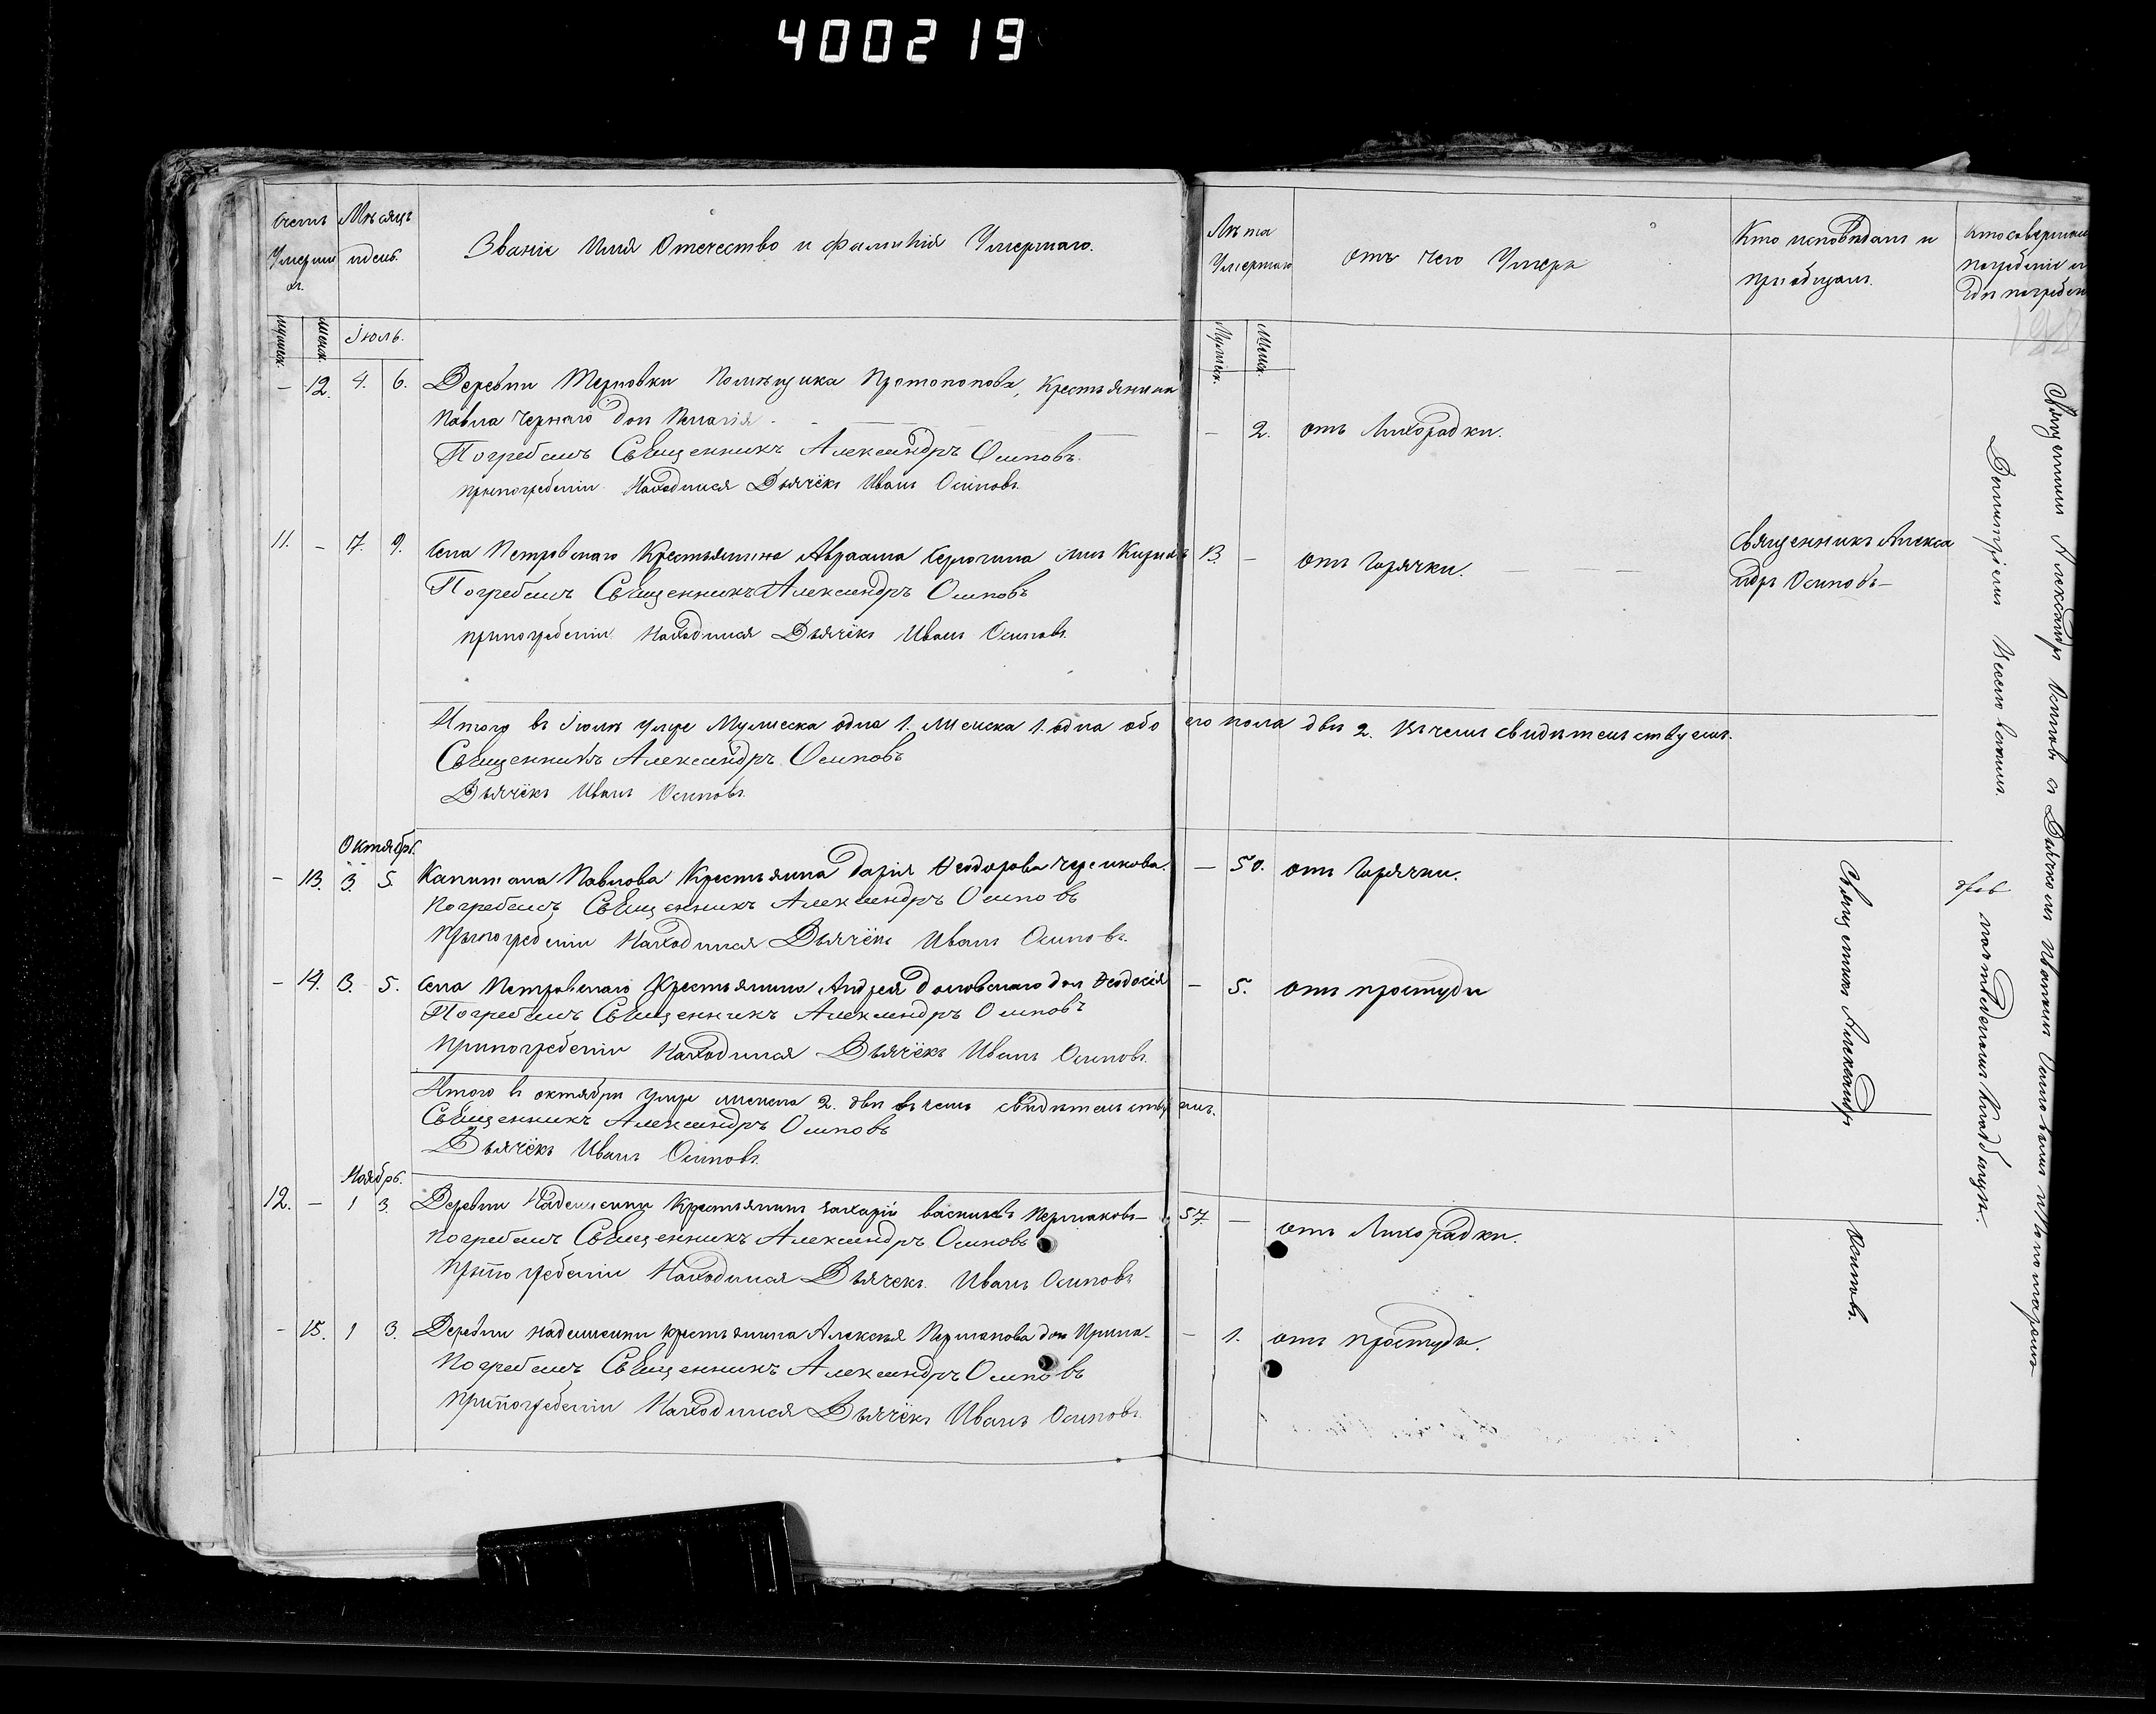 400219
Счетъ Умершихъ.
Мѣсяцъ и день.
Званіе Имя Отечество и фамилія Умершаго.
Лѣта Умершаго
отъ чего Умеръ
Кто исповѣдалъ и
пріобщалъ.
кто совершалъ
погребеніе и
гдѣ погребены
мужеск.
женск.
Іюль.
Мужеск.
Женск.
– 12. 4. 6. Деревни Терновки Помѣщика Протопопова, Крестьянина
Павла Чернаго дочь Пелагія – 2. отъ Лихорадки.
Погребалъ Священникъ Александръ Осиповъ.
припогребеніи Находился Дьячёкъ Иванъ Осиповъ.
11. – 7. 9. Села Петровскаго Крестьянина Авраама сынъ 13. – отъ Горячки.
Священникъ Алекса
ндръ Осиповъ –
Погребалъ Священникъ Александръ Осиповъ
припогребеніи Находился Дьячёкъ Иванъ Осиповъ.
Итого въ Іюлѣ умре Мужеска одна 1. Женска 1. одна обоего пола двѣ 2. Въ чемъ свидѣтельствуемъ.
Священникъ Александръ Осиповъ
Дьячёкъ Иванъ Осиповъ.
Октябрь.
– 13. 3. 5. Капитана Павлова Крестьянина Дарія Ѳеодорова – 50. отъ Горячки.
Погребалъ Священникъ Александръ Осиповъ
Припогребеніи Находился Дьячёкъ Иванъ Осиповъ.
– 14. 3. 5. Села Петровскаго Крестьянина Андрея дочь Ѳеодосія – 5. отъ простуды
Погребалъ Священникъ Александръ Осиповъ
Припогребеніи Находился Дьячёкъ Иванъ Осиповъ.
Итого въ октябри умре женска 2. двѣ въ чемъ свидѣтельствуемъ.
Священникъ Александръ Осиповъ
Дьячёкъ Иванъ Осиповъ.
Ноябрь.
12. – 1 3. Деревни Надеждиной Крестьянинъ Захарій Васильевъ Пермаковъ – 57 – отъ Лихорадки.
Погребалъ Священникъ Александръ Осиповъ
Припогребеніи Находился Дьячекъ Иванъ Осиповъ
– 15. 1 3. Деревни Надеждиной крестьянина Алексѣя Пермакова дочь Ирина – – 1. отъ простуды.
Погребалъ Священникъ Александръ Осиповъ
Припогребеніи Находился Дьячёкъ Иванъ Осиповъ.
Священникъ Александръ
Осиповъ.
Священникъ Александръ Осиповъ съ Дьячкомъ Иваномъ Осиповымъ
Димитріемъ
на отведенномъ кладбищѣ.